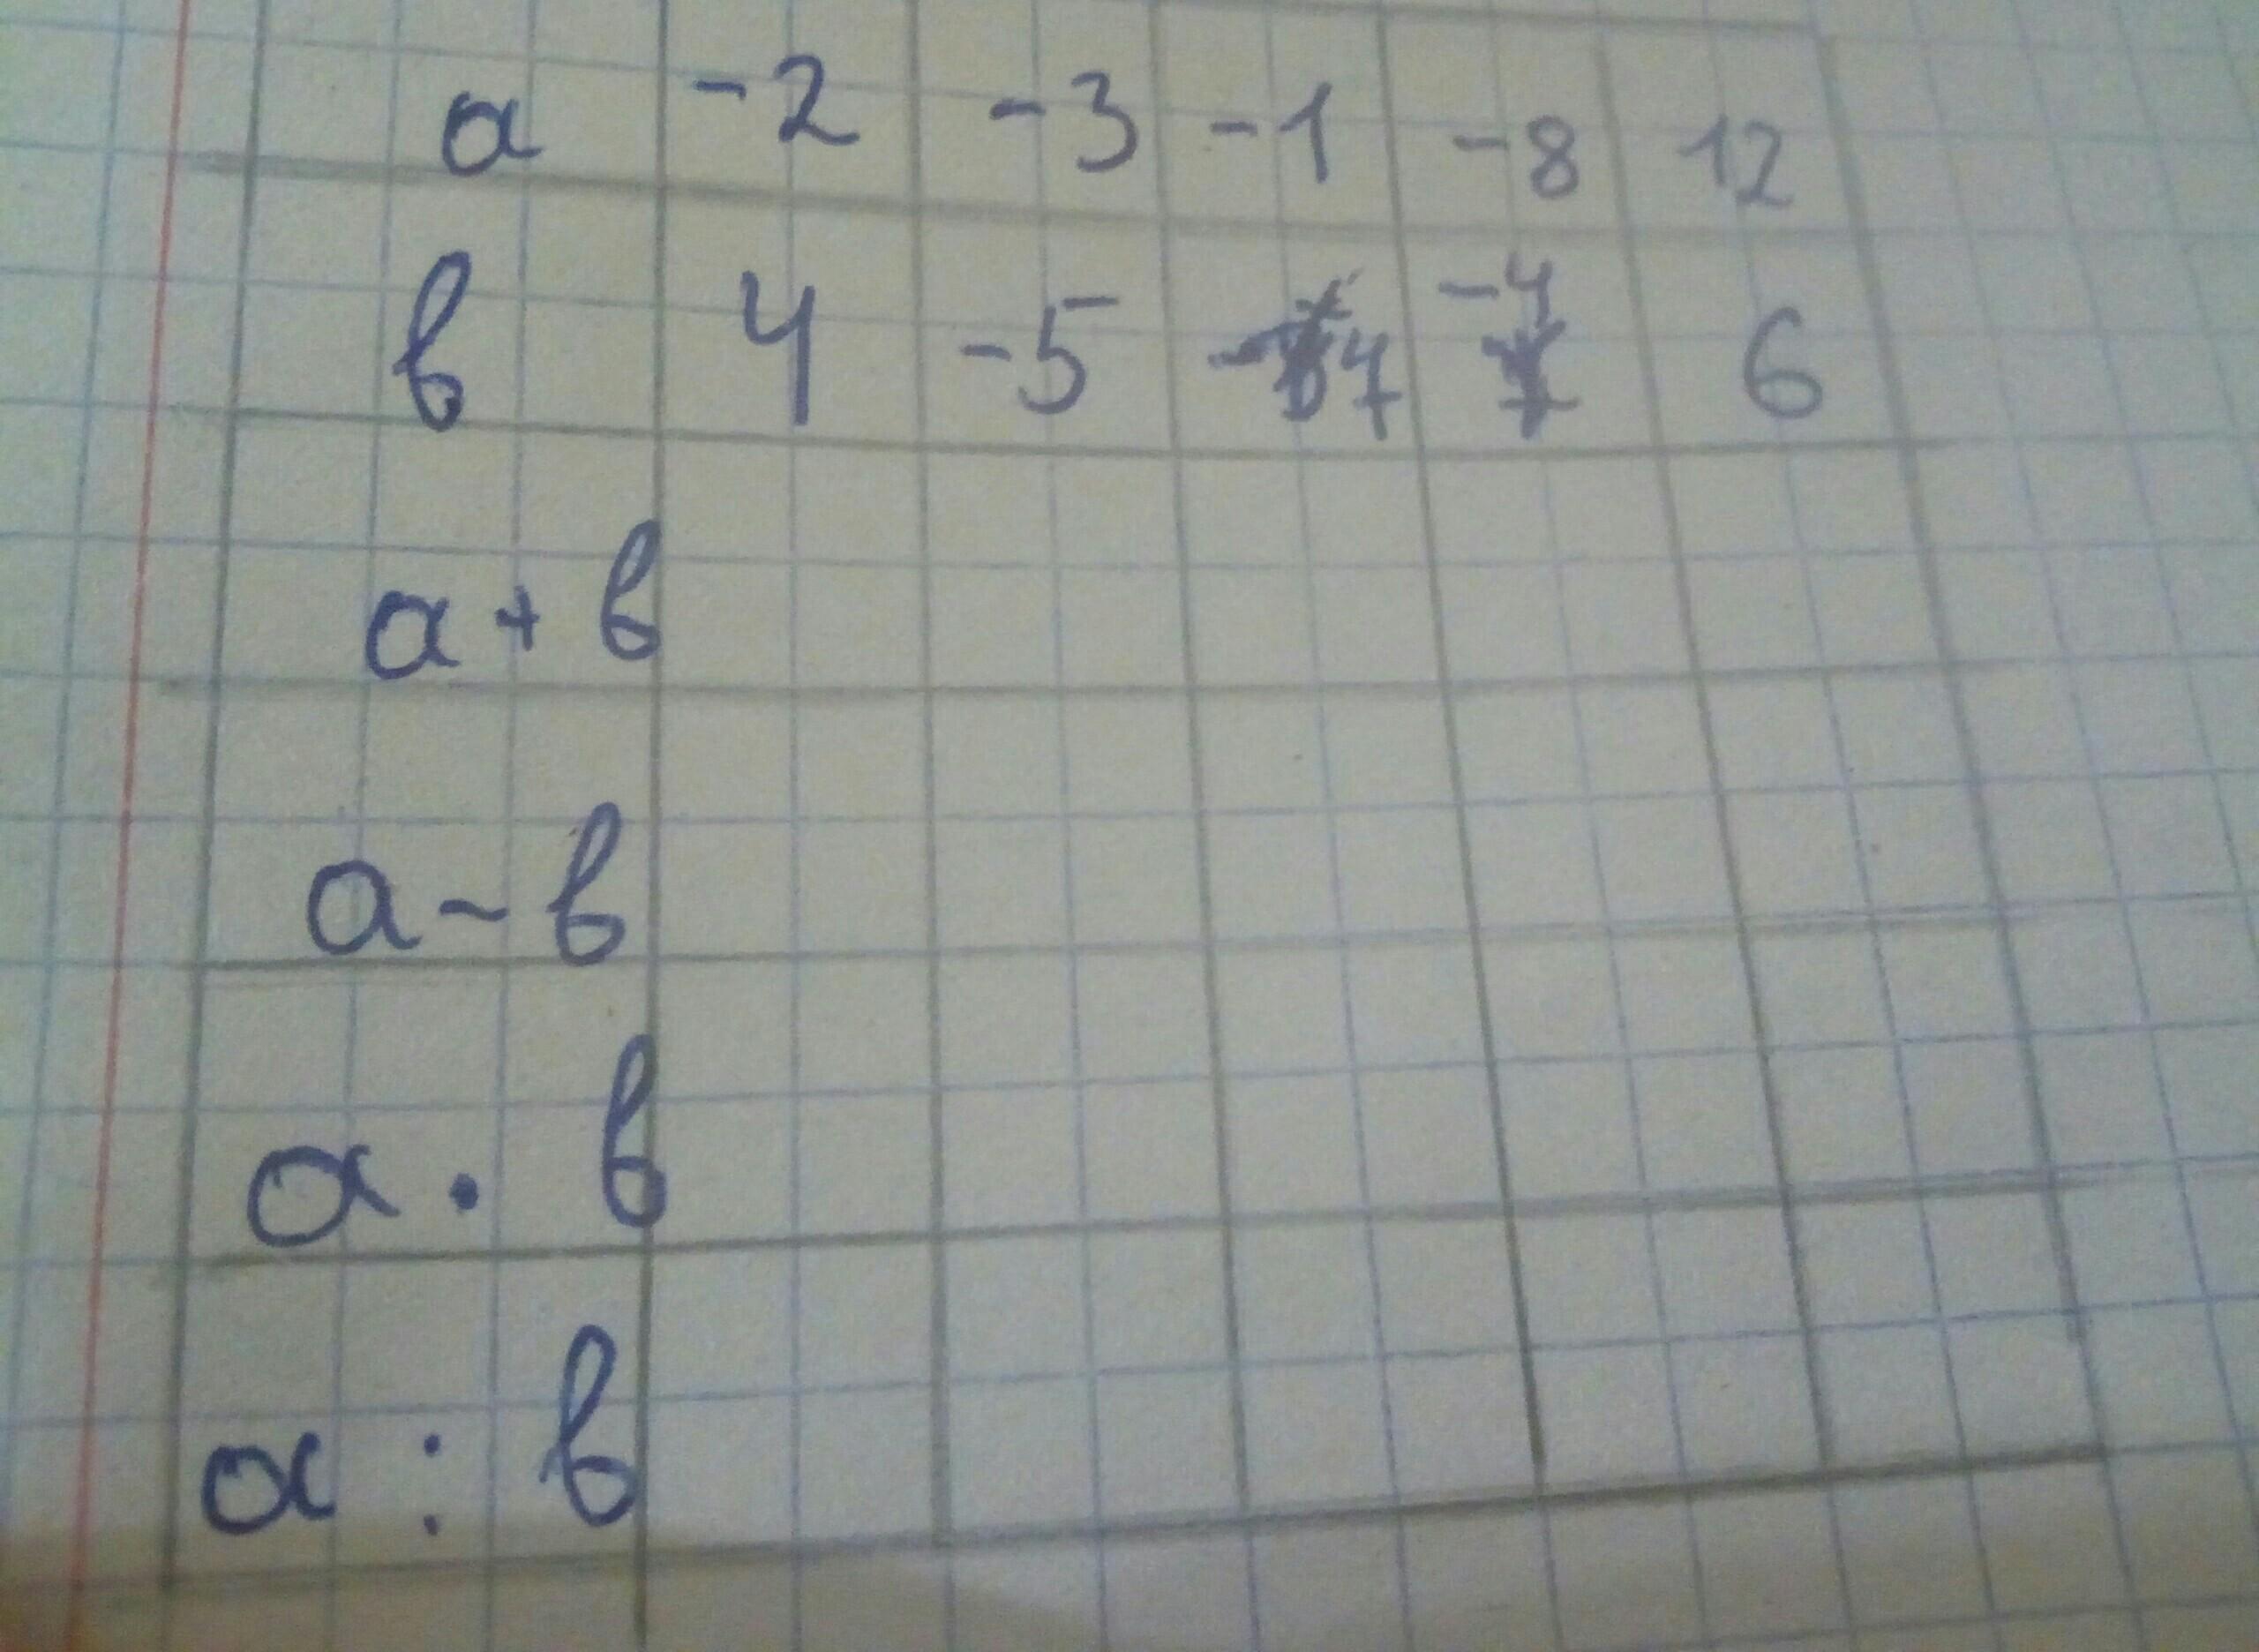 а -2 -3 -1 -8 12
в 4 -5 7 -4 6
а + в
а - в
а · в
а : в